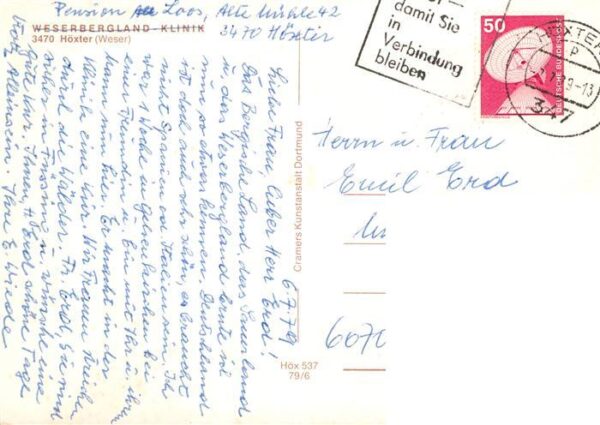 Pension Loos, Alte Mühle 42
WESERBERGLAND - KLINIK
3470 Höxter
3470 Höxter (Weser)
6.7.79
Liebe Frau, lieber Herr Erd!
Das Bergische Land, das Sauerland
u. das Weserbergland lernte ich
nun so etwas kennen. Deutschland
ist doch auch sehr schön, es braucht
nicht Spanien od. Italien sein. Ich
war 1 Woche in Gelsenkirchen bei
einer Freundin u. bin mit ihr u. ihrem
Mann nun hier. Er macht in der
Klinik eine Kur. Wir Frauen streichen
durch die Wälder. Fr. Erd, Sie nun
sicher in Füssing u. wünsche eine
gute Kur. Ihnen, H. Erd schöne Tage
trotz Alleinsein. Ihre E. Wiede
Cramers Kunstanstalt Dortmund
Höx 537
79/6
damit Sie
in
Verbindung
bleiben
50
DEUTSCHE BUNDESPOST
HÖXTER
347
Herrn u. Frau
Emil Erd